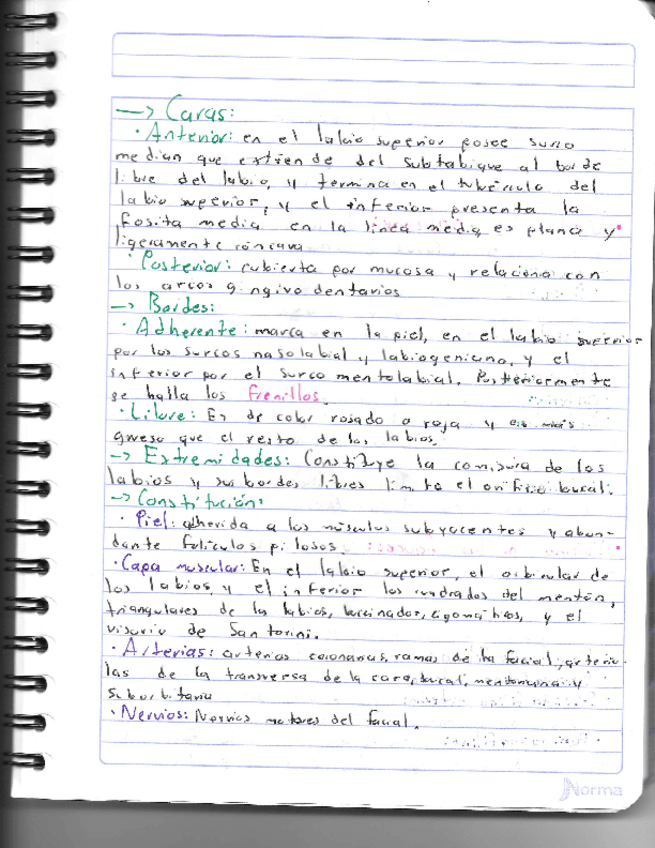 → Caras:
· Anterior: en el labio superior posee surco
median que extiende del subtabique al borde
libre del labio, y termina en el tubérculo del
labio superior, y el inferior presenta la
fosita media en la línea media es plana y
ligeramente cóncava
· Posterior: cubierta por mucosa y relaciona con
los arcos gingivodentarios
→ Bordes:
· Adherente: marca en la piel, en el labio superior
por los surcos nasolabial y labiogeniano, y el
inferior por el surco mentolabial. Posteriormente
se halla los frenillos.
· Libre: Es de color rosado a roja y es más
grueso que el resto de los labios.
→ Extremidades: Constituye la comisura de los
labios y sus bordes libres limita el orificio bucal.
→ Constitución:
· Piel: adherida a los músculos subyacentes y abun-
dante folículos pilosos
· Capa muscular: En el labio superior, el orbicular de
los labios, y el inferior los cuadrados del mentón,
triangulares de los labios, buccinador, cigomáticos, y el
risorio de Santorini.
· Arterias: arterias coronarias, ramas de la facial, arterio-
las de la transversa de la cara, bucal, mentoniana y
suborbitaria
· Nervios: Nervios motores del facial.
Norma